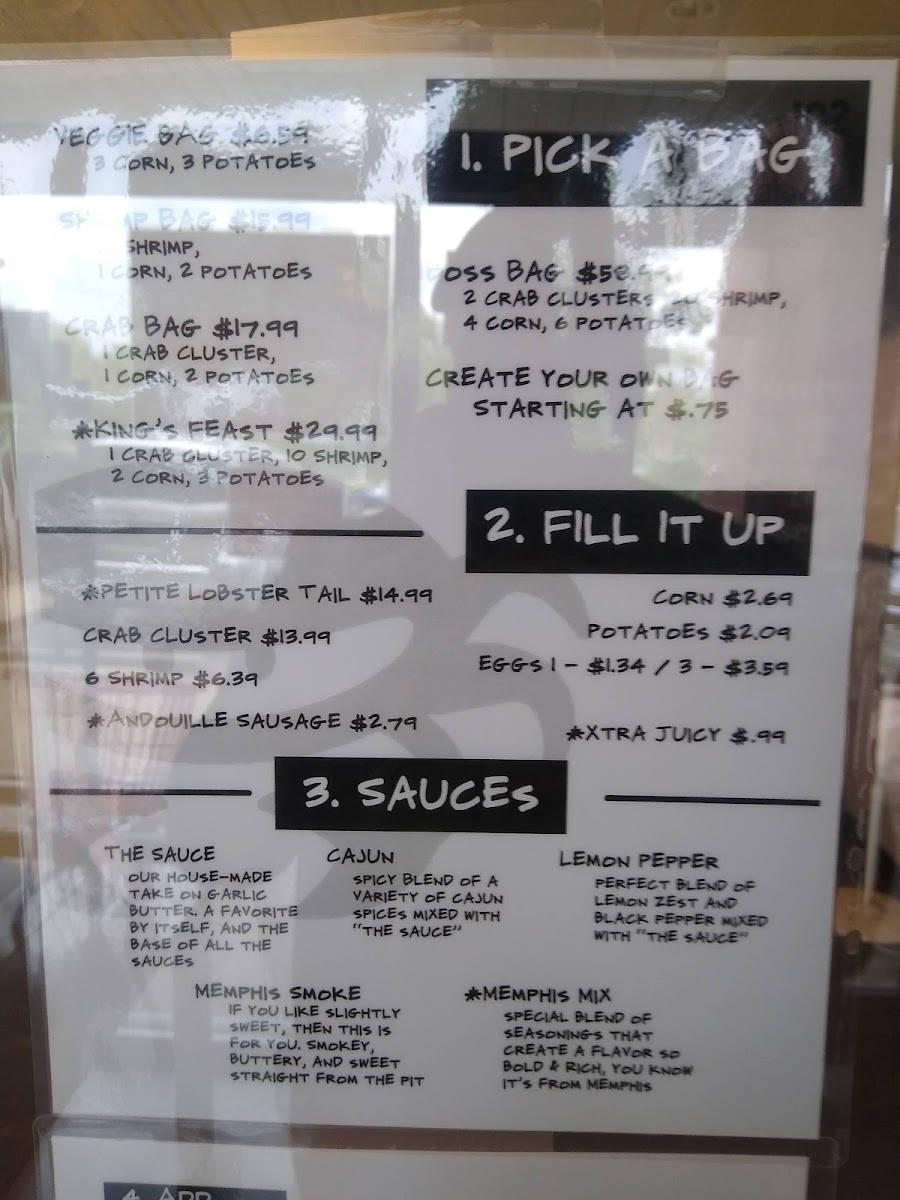 1. PICK A BAG
VEGGIE BAG $6.59
3 CORN, 3 POTATOES
BAG $15.99
SHRIMP,
1 CORN, 2 POTATOES
CRAB BAG $17.99
1 CRAB CLUSTER,
1 CORN, 2 POTATOES
*KING'S FEAST $29.99
1 CRAB CLUSTER, 10 SHRIMP,
2 CORN, 3 POTATOES
BOSS BAG
2 CRAB CLUSTERS, SHRIMP,
4 CORN, 6 POTATOES
CREATE YOUR OWN BAG
STARTING AT $.75
2. FILL IT UP
*PETITE LOBSTER TAIL $14.99
CRAB CLUSTER $13.99
6 SHRIMP $6.39
*ANDOUILLE SAUSAGE $2.79
CORN $2.69
POTATOES $2.09
EGGS 1 - $1.34 / 3 - $3.59
*XTRA JUICY $.99
3. SAUCES
THE SAUCE
OUR HOUSE-MADE
TAKE ON GARLIC
BUTTER. A FAVORITE
BY ITSELF, AND THE
BASE OF ALL THE
SAUCES
CAJUN
SPICY BLEND OF A
VARIETY OF CAJUN
SPICES MIXED WITH
"THE SAUCE"
LEMON PEPPER
PERFECT BLEND OF
LEMON ZEST AND
BLACK PEPPER MIXED
WITH "THE SAUCE"
MEMPHIS SMOKE
IF YOU LIKE SLIGHTLY
SWEET, THEN THIS IS
FOR YOU. SMOKEY,
BUTTERY, AND SWEET
STRAIGHT FROM THE PIT
*MEMPHIS MIX
SPECIAL BLEND OF
SEASONINGS THAT
CREATE A FLAVOR SO
BOLD & RICH, YOU KNOW
IT'S FROM MEMPHIS